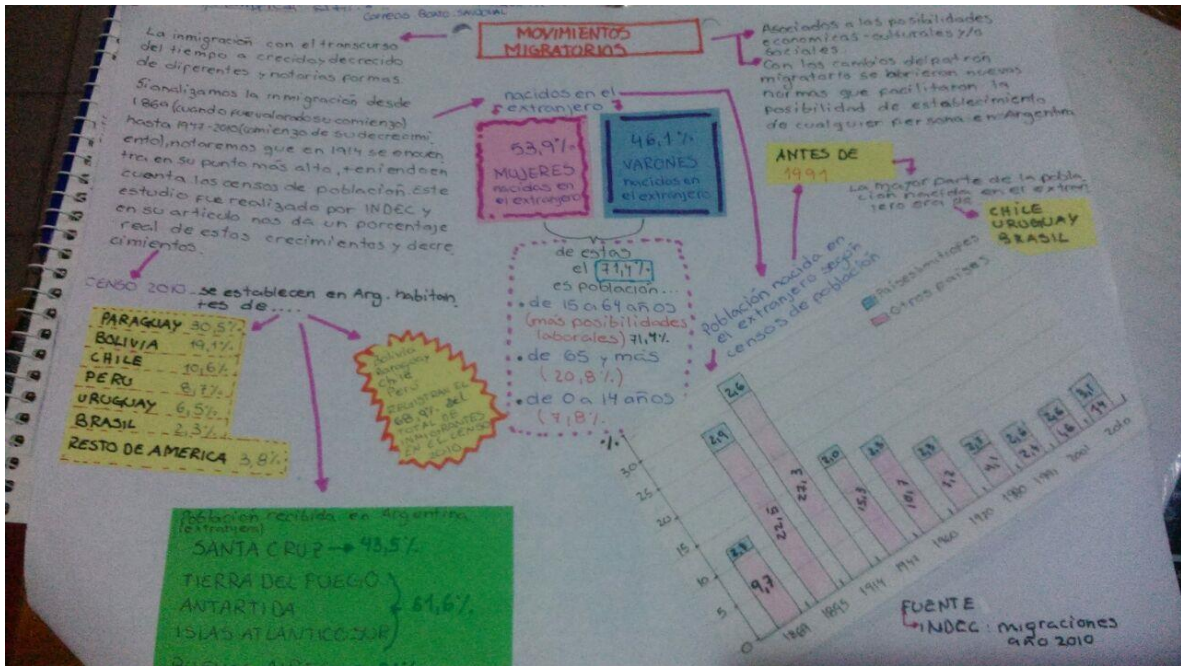 CORREOS BONTO. SANDOVAL
MOVIMIENTOS
MIGRATORIOS
La inmigración con el transcurso
del tiempo a crecido y decrecido
de diferentes y notorias formas.
Si analizamos la inmigración desde
1869 (cuando fue valorado su comienzo)
hasta 1947-2010 (comienzo de su decreomi
ento), notaremos que en 1914 se encuen
tra en su punto más alto, teniendo en
cuenta los censos de población. Este
estudio fue realizado por INDEC y
en su articulo nos da un porcentaje
real de estos crecimientos y decre
cimientos.
Asociados a las posibilidades
economicas-culturales y/o
sociales.
Con los cambios del patrón
migratorio se abrieron nuevas
normas que facilitaron la
posibilidad de establecimiento
de cualquier persona en Argentina
nacidos en el
extranjero
53,9%
MUJERES
nacidas en
el extranjero
46,1%
VARONES
nacidos en
el extranjero
de estas
el 71,4%
es población...
• de 15 a 64 años
(más posibilidades
laborales) 71,4%
• de 65 y más
(20,8%)
• de 0 a 14 años
(7,8%
ANTES DE
1991
La mayor parte de la pobla
ción nacida en el extran
jero era de
CHILE
URUGUAY
BRASIL
CENSO 2010 se establecen en Arg. habitan
tes de....
PARAGUAY 30,5%
BOLIVIA 19,1%
CHILE 10,6%
PERU 8,7%
URUGUAY 6,5%
BRASIL 2,3%
RESTO DE AMERICA 3,8%
Bolivia
Paraguay
Chile
Perú
REGISTRAN EL
68,9% del
TOTAL DE
INMIGRANTES
EN EL CENSO
2010
Población recibida en Argentina
(extranjera)
SANTA CRUZ → 43,5%
TIERRA DEL FUEGO
ANTARTIDA
ISLAS ATLANTICO SUR
61,6%
Población nacida en
el extranjero según
censos de población
Países limítrofes
Otros países
%
30
25
20
15
10
5
0
2,4
9,7
2,9
22,5
2,6
27,3
2,0
15,3
2,3
10,7
2,3
7,2
2,6
2,4
2,6
1,6
3,1
1,4
1869
1895
1914
1947
1960
1970
1980
1991
2001
2010
FUENTE
INDEC: migraciones
año 2010